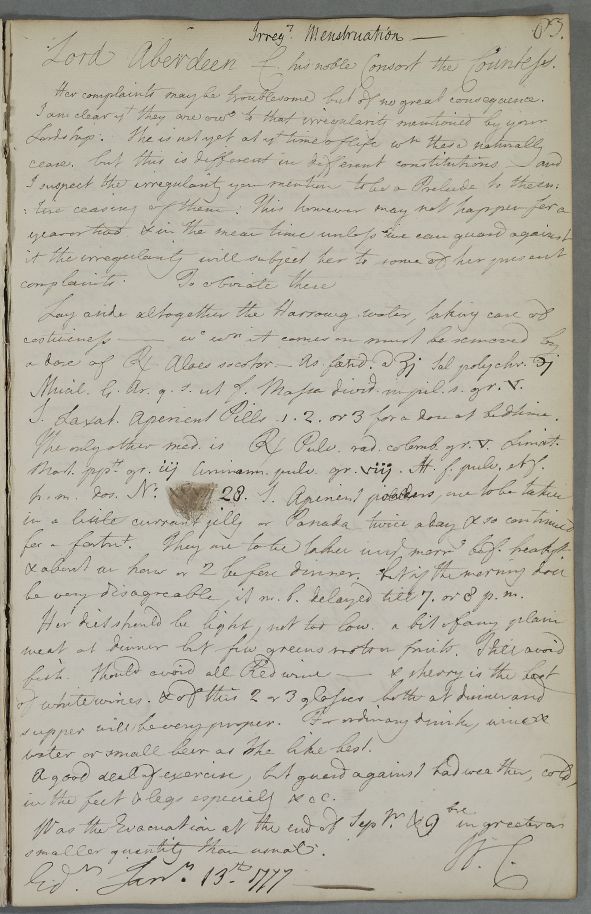 Irreg.r Menstruation —
63.
Lord Aberdeen his noble Consort the Countess.
Her complaints may be troublesome but of no great consequence.
I am clear yt they are owg to that irregularity mentioned by your
Lordship. She is not yet at yt time of life wn these naturally
cease. but this is different in different constitutions and
I suspect the irregularity you mention to be a Prelude to the en:
:tire ceasing of them: This however may not happen for a
year or two & in the mean time unless we can guard against
it the irregularity will subject her to some of her present
complaints. To obviate these
Lay aside altogether the Harrowg. water, taking care of
costiveness — wc wn it comes on must be removed by
a dose of Rx Aloes socotor. As. foetid. a ʒj Sal polychr. ʒj
Mucil. G. Ar. q. s. ut f. Massa divid. in pil. s. gr. V.
S. Laxat. Aperient Pills. 1. 2. or 3 for a dose at bedtime.
The only other med. is Rx Pulv. rad. colomb. gr. V. Limat.
Mart. ppt. gr. iij Cinnam. pulv. gr. viij. M. f. pulv. et f.
p. m. dos. No. 28. S. Aperient powders, one to be taken
in a little currant jelly or Panada twice a day & so continued
for a fortnt. They are to be taken every morng bef. breakft.
& about an hour or 2 before dinner. but if the morning dose
be very disagreable, it m. b. delayed till 7. or 8 p. m.
Her diet should be light, not too low. a bit of any plain
meat at dinner but few greens roots or fruits. Still avoid
fish. Should avoid all Red wine — & sherry is the best
of white wines. & of this 2 or 3 glasses both at dinner and
supper will be very proper. For ordinary drink, wine &
water or small beer as she like best.
A good deal of exercise, but guard against bad weather, cold,
in the feet & legs especially &cc.
Was the Evacuation at the end of Sepr. & 9bre in greater or
smaller quantity than usual.
W. C.
Edr. Janry 13th 1777